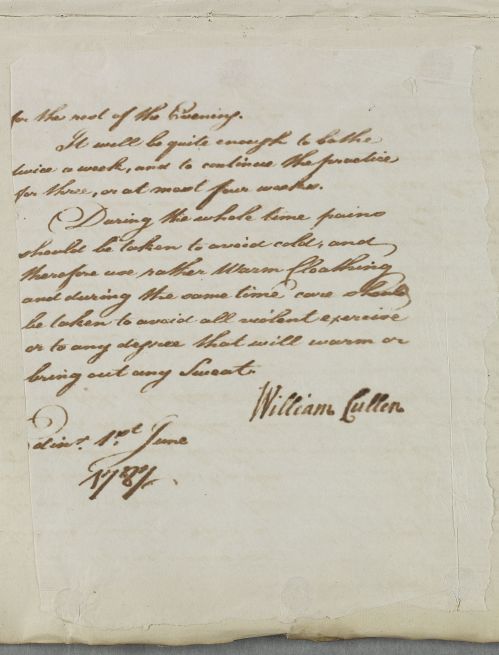 for the rest of the Evening.
It will be quite enough to bathe
twice a week, and to continue the practice
for three, or at most four weeks.
During the whole time pains
should be taken to avoid cold, and
therefore use rather Warm Cloathing
and during the same time care should
be taken to avoid all violent exercise
or to any degree that will warm or
bring out any Sweat.
William Cullen
Edinr. 1st. June
1787.